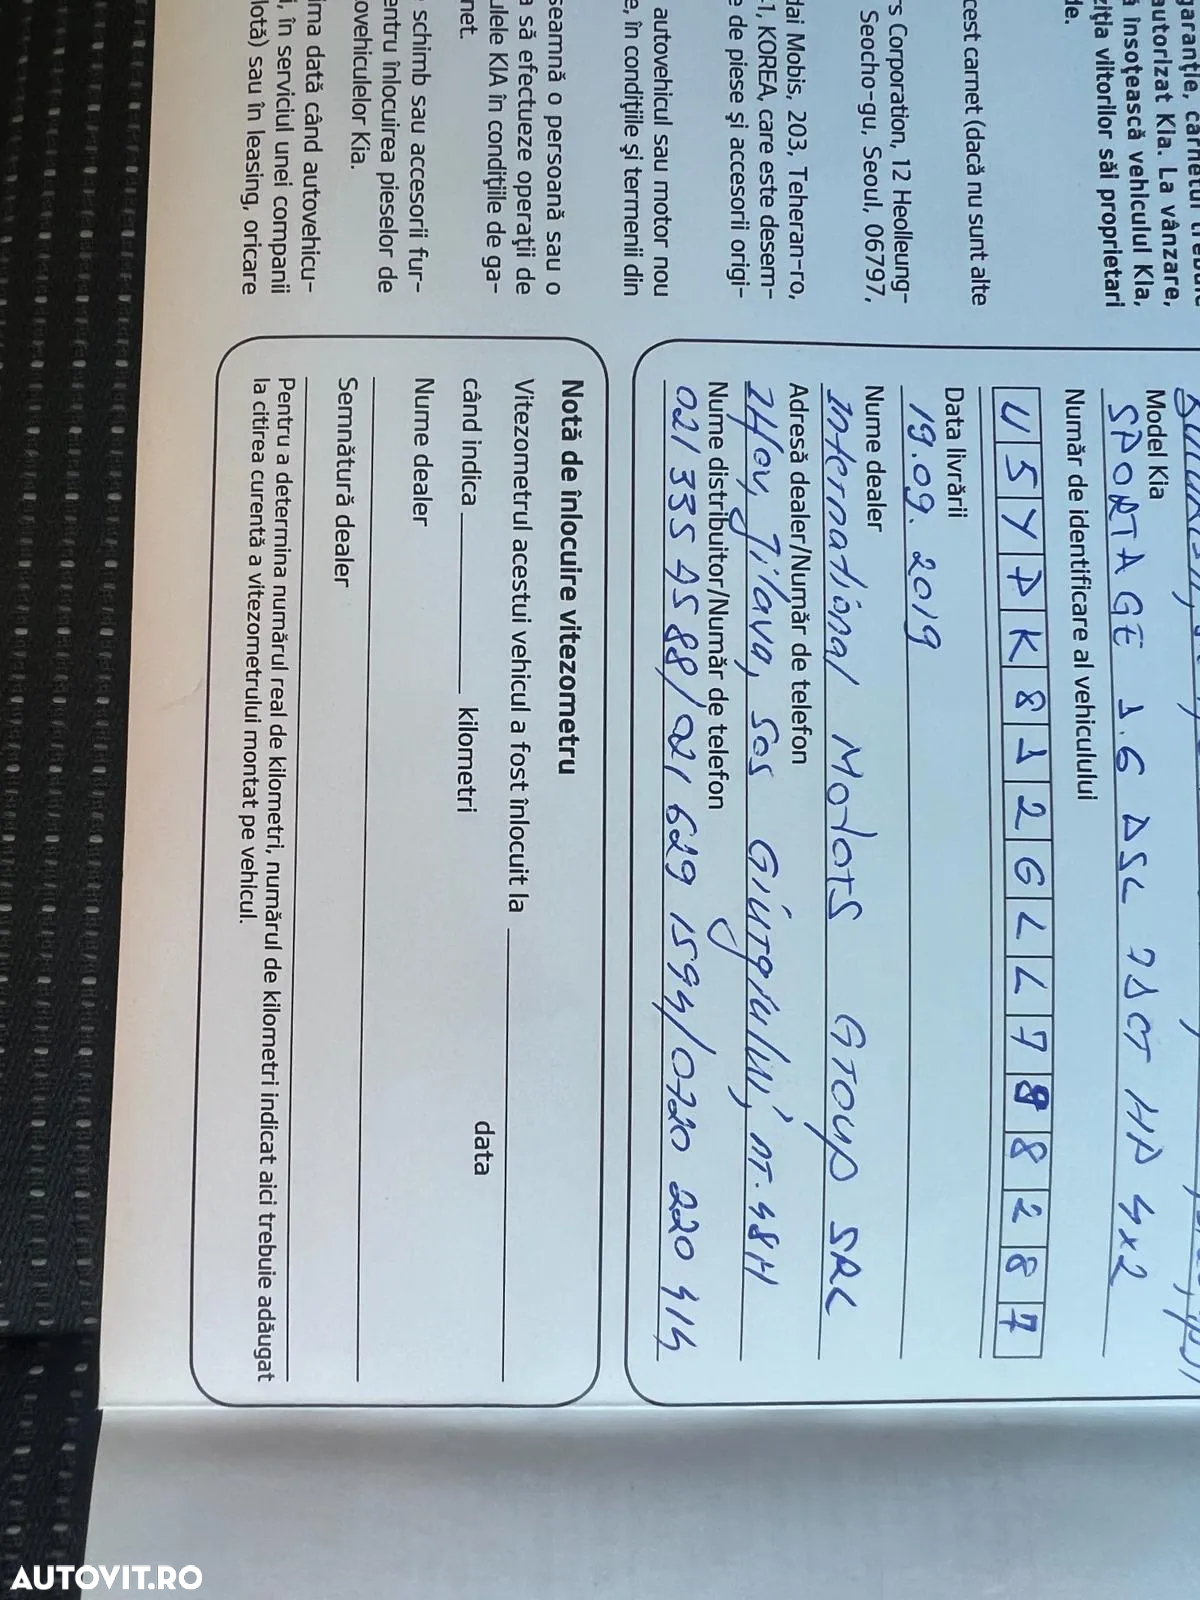 garanție, carnetul trebuie
autorizat Kia. La vânzare,
ă însoțească vehiculul Kia,
ziția viitorilor săi proprietari
de.
cest carnet (dacă nu sunt alte
rs Corporation, 12 Heolleung-
Seocho-gu, Seoul, 06797,
dai Mobis, 203, Teheran-ro,
-1, KOREA, care este desem-
e de piese și accesorii origi-
autovehicul sau motor nou
e, în condițiile și termenii din
seamnă o persoană sau o
a să efectueze operații de
ulele KIA în condițiile de ga-
net.
schimb sau accesorii fur-
entru înlocuirea pieselor de
ovehiculelor Kia.
ima dată când autovehicu-
i, în serviciul unei companii
lotă) sau în leasing, oricare
Model Kia
SPORTAGE 1.6 DSL 7DCT HP 4x2
Număr de identificare al vehiculului
U5YPK812GLL788287
Data livrării
19.09.2019
Nume dealer
International Motors Group SRL
Adresă dealer/Număr de telefon
Ilfov, Jilava, Sos Giurgiului, nr. 48H
Nume distribuitor/Număr de telefon
021 335 45 88/021 629 1594/0720 220 414
Notă de înlocuire vitezometru
Vitezometrul acestui vehicul a fost înlocuit la
când indica kilometri data
Nume dealer
Semnătură dealer
Pentru a determina numărul real de kilometri, numărul de kilometri indicat aici trebuie adăugat
la citirea curentă a vitezometrului montat pe vehicul.
AUTOVIT.RO